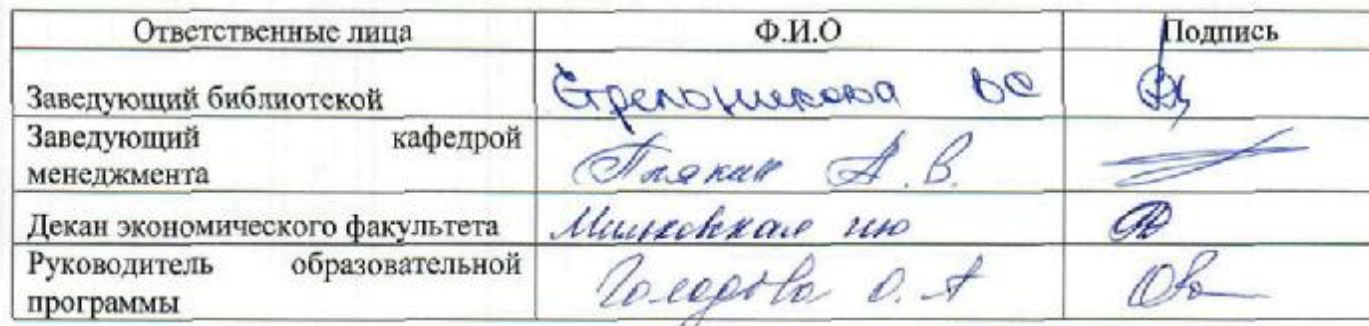 Ответственные лица Ф.И.О Подпись
Заведующий библиотекой Стрельникова ВС
Заведующий кафедрой
менеджмента Плякин А.В.
Декан экономического факультета
Руководитель образовательной
программы О. А